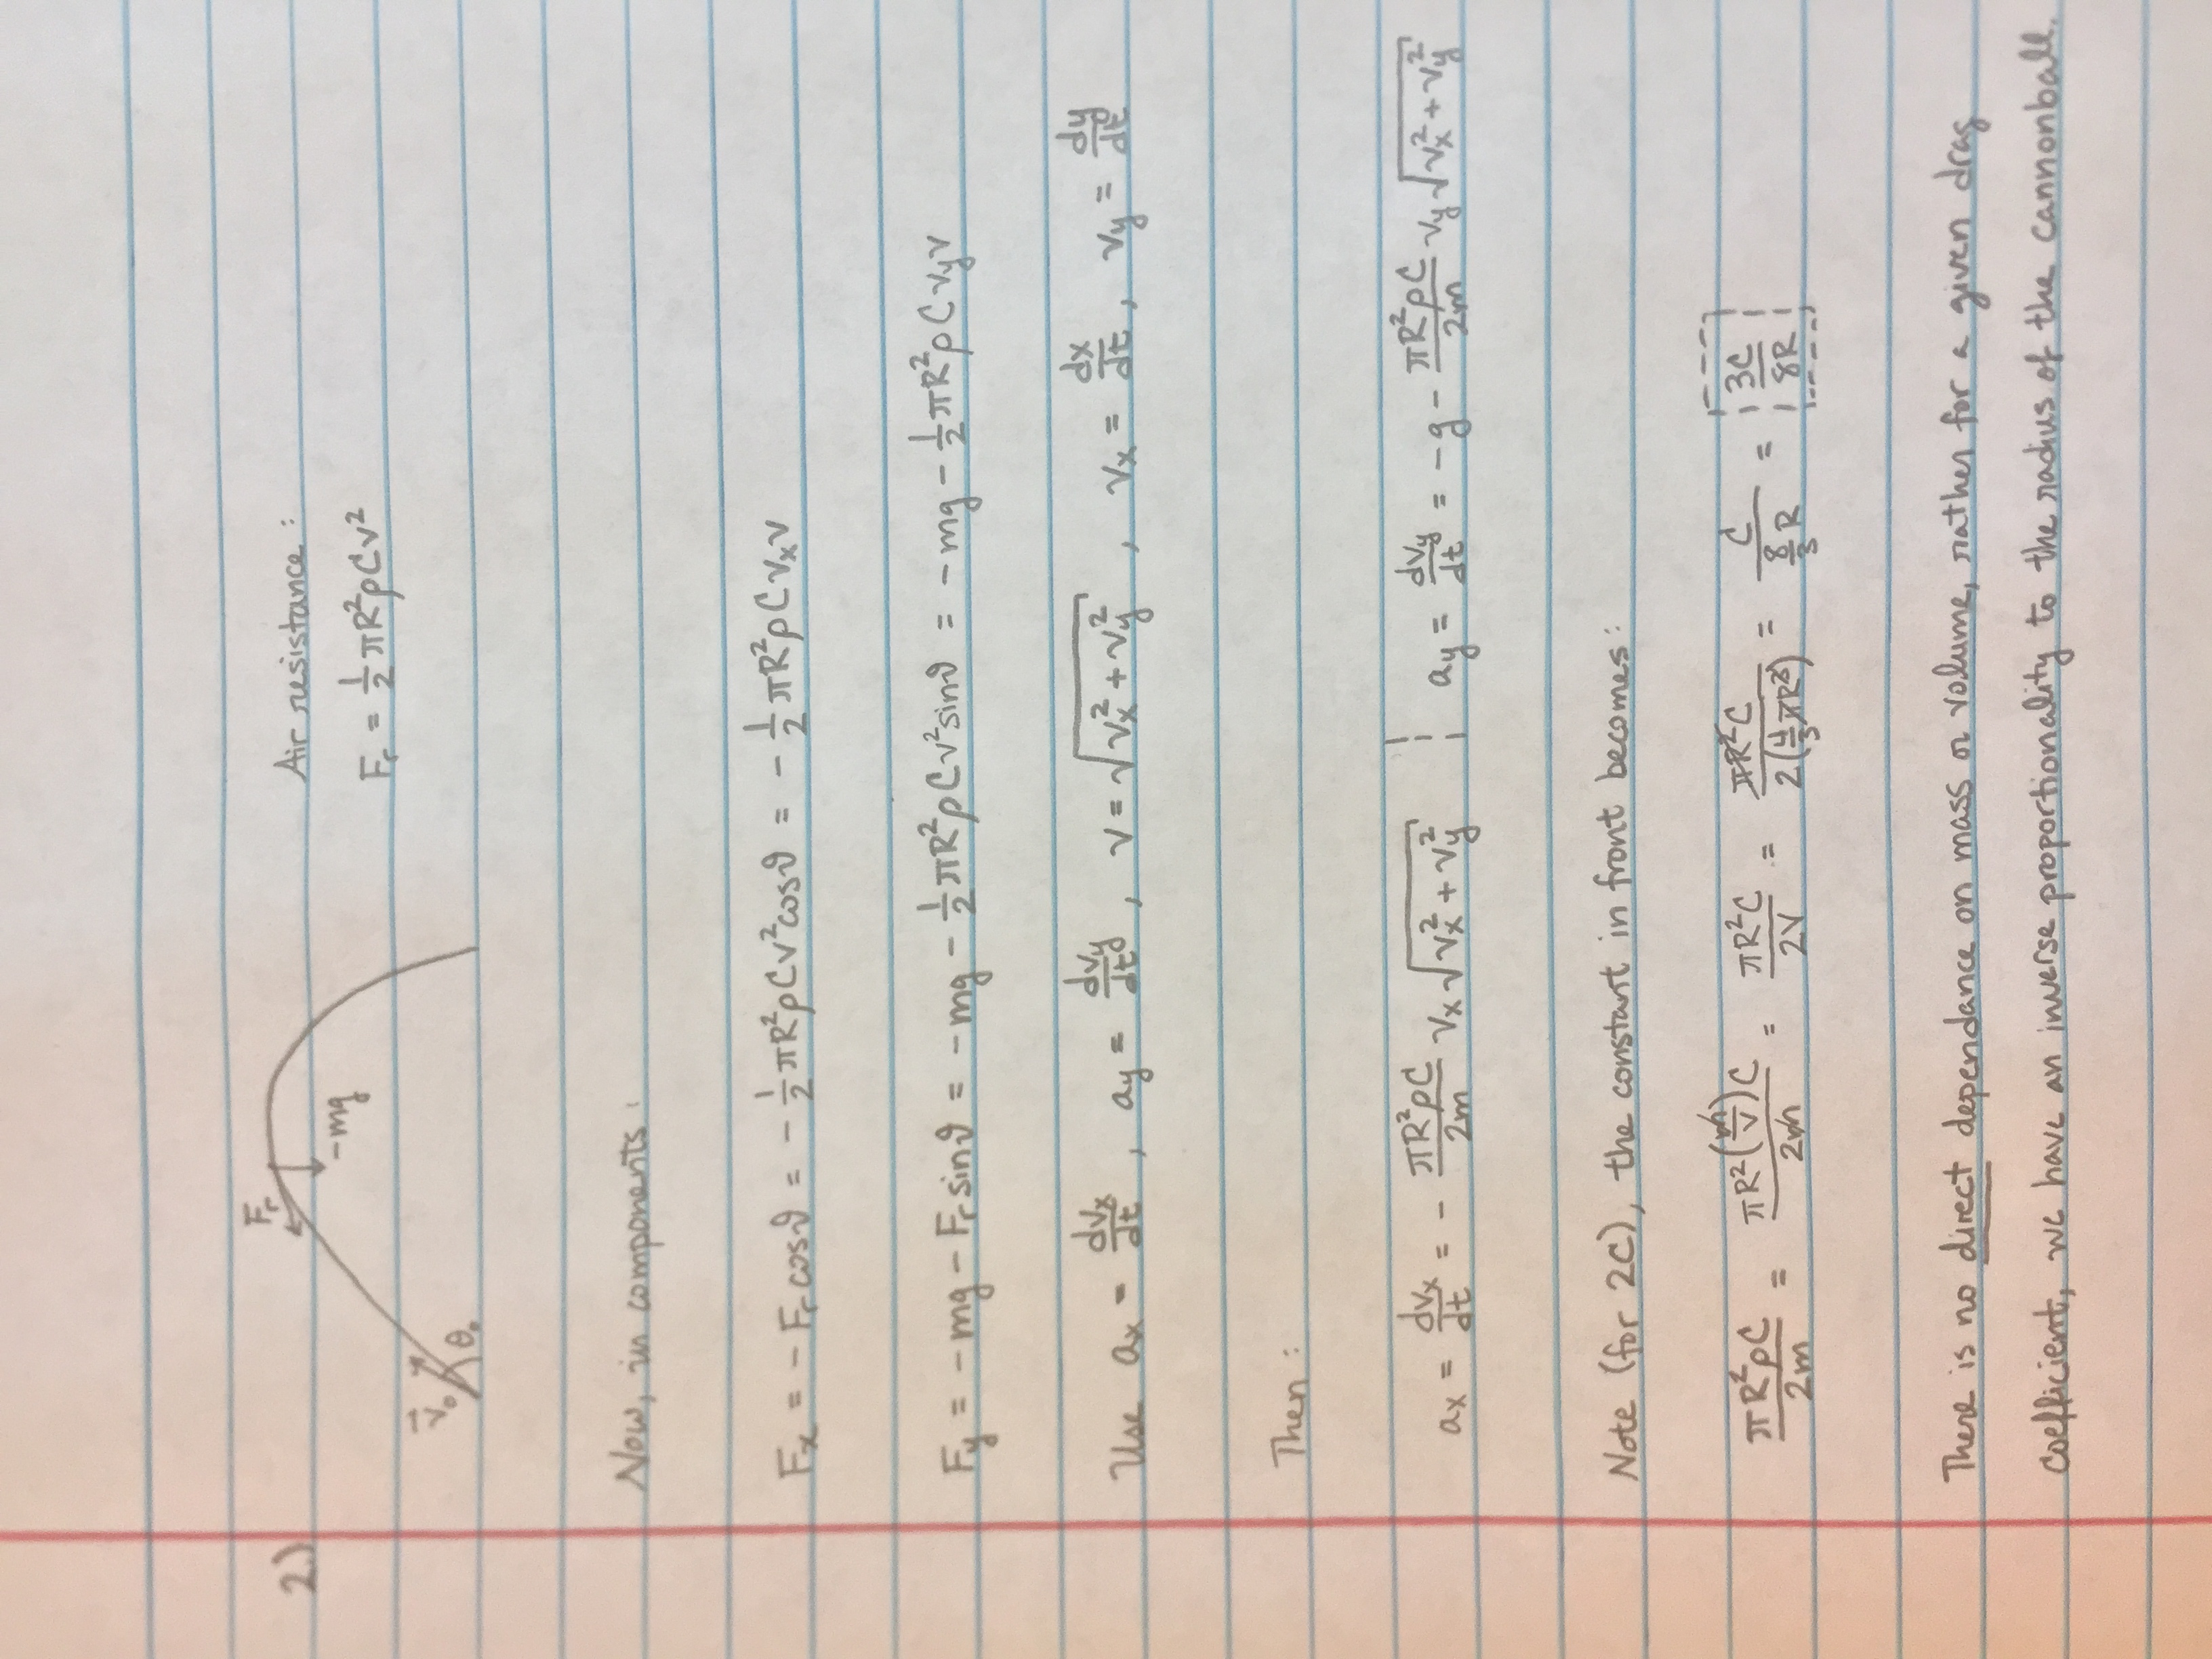 2.)
F_r
-mg
v⃗₀ θ₀
Air resistance :
F_r = 1/2 πR²ρCv²
Now, in components :
F_x = - F_r cosϑ = - 1/2 πR²ρCv²cosϑ = - 1/2 πR²ρC v_x v
F_y = -mg - F_r sinϑ = -mg - 1/2 πR²ρCv²sinϑ = -mg - 1/2 πR²ρC v_y v
Use a_x = dv_x/dt , a_y = dv_y/dt , v = √(v_x² + v_y²) , v_x = dx/dt , v_y = dy/dt
Then :
a_x = dv_x/dt = - πR²ρC/2m v_x √(v_x² + v_y²) ¦ a_y = dv_y/dt = -g - πR²ρC/2m v_y √(v_x² + v_y²)
Note (for 2C), the constant in front becomes :
πR²ρC/2m = πR²(m/V)C/2m = πR²C/2V = πR²C/2(4/3 πR³) = C/(8/3 R) = 3C/8R
There is no direct dependance on mass or volume, rather for a given drag
coefficient, we have an inverse proportionality to the radius of the cannonball.